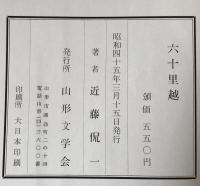 六十里越
頒価 五五〇円
昭和四十五年三月十五日発行
著者 近藤侃一
発行所 山形文学会
山形市諏訪町二の十四
印刷所 大日本印刷